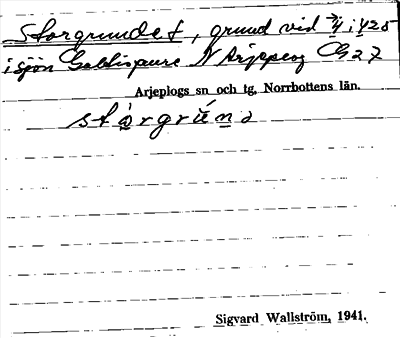 Storgrundet, grund vid → 4 i 425
i sjön Galtispure N Arjeplog Gb 27
Arjeplogs sn och tg, Norrbottens län.
stórgrŭńd
Sigvard Wallström, 1941.